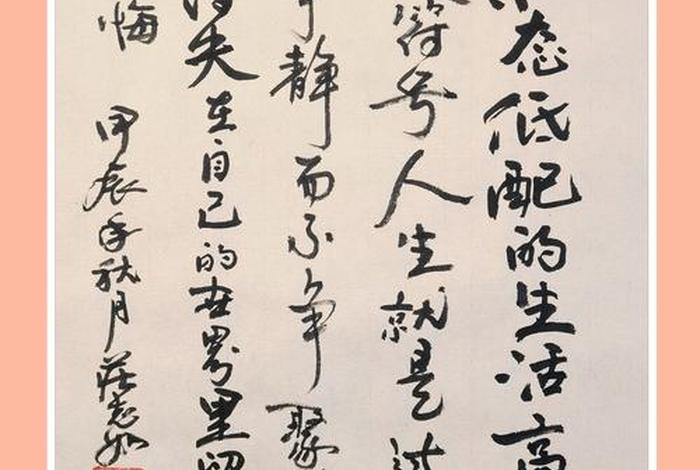 态低配的生活高
符号人生就是
静而不争聚
得失在自己的世界里
悔
甲辰年秋月庄志